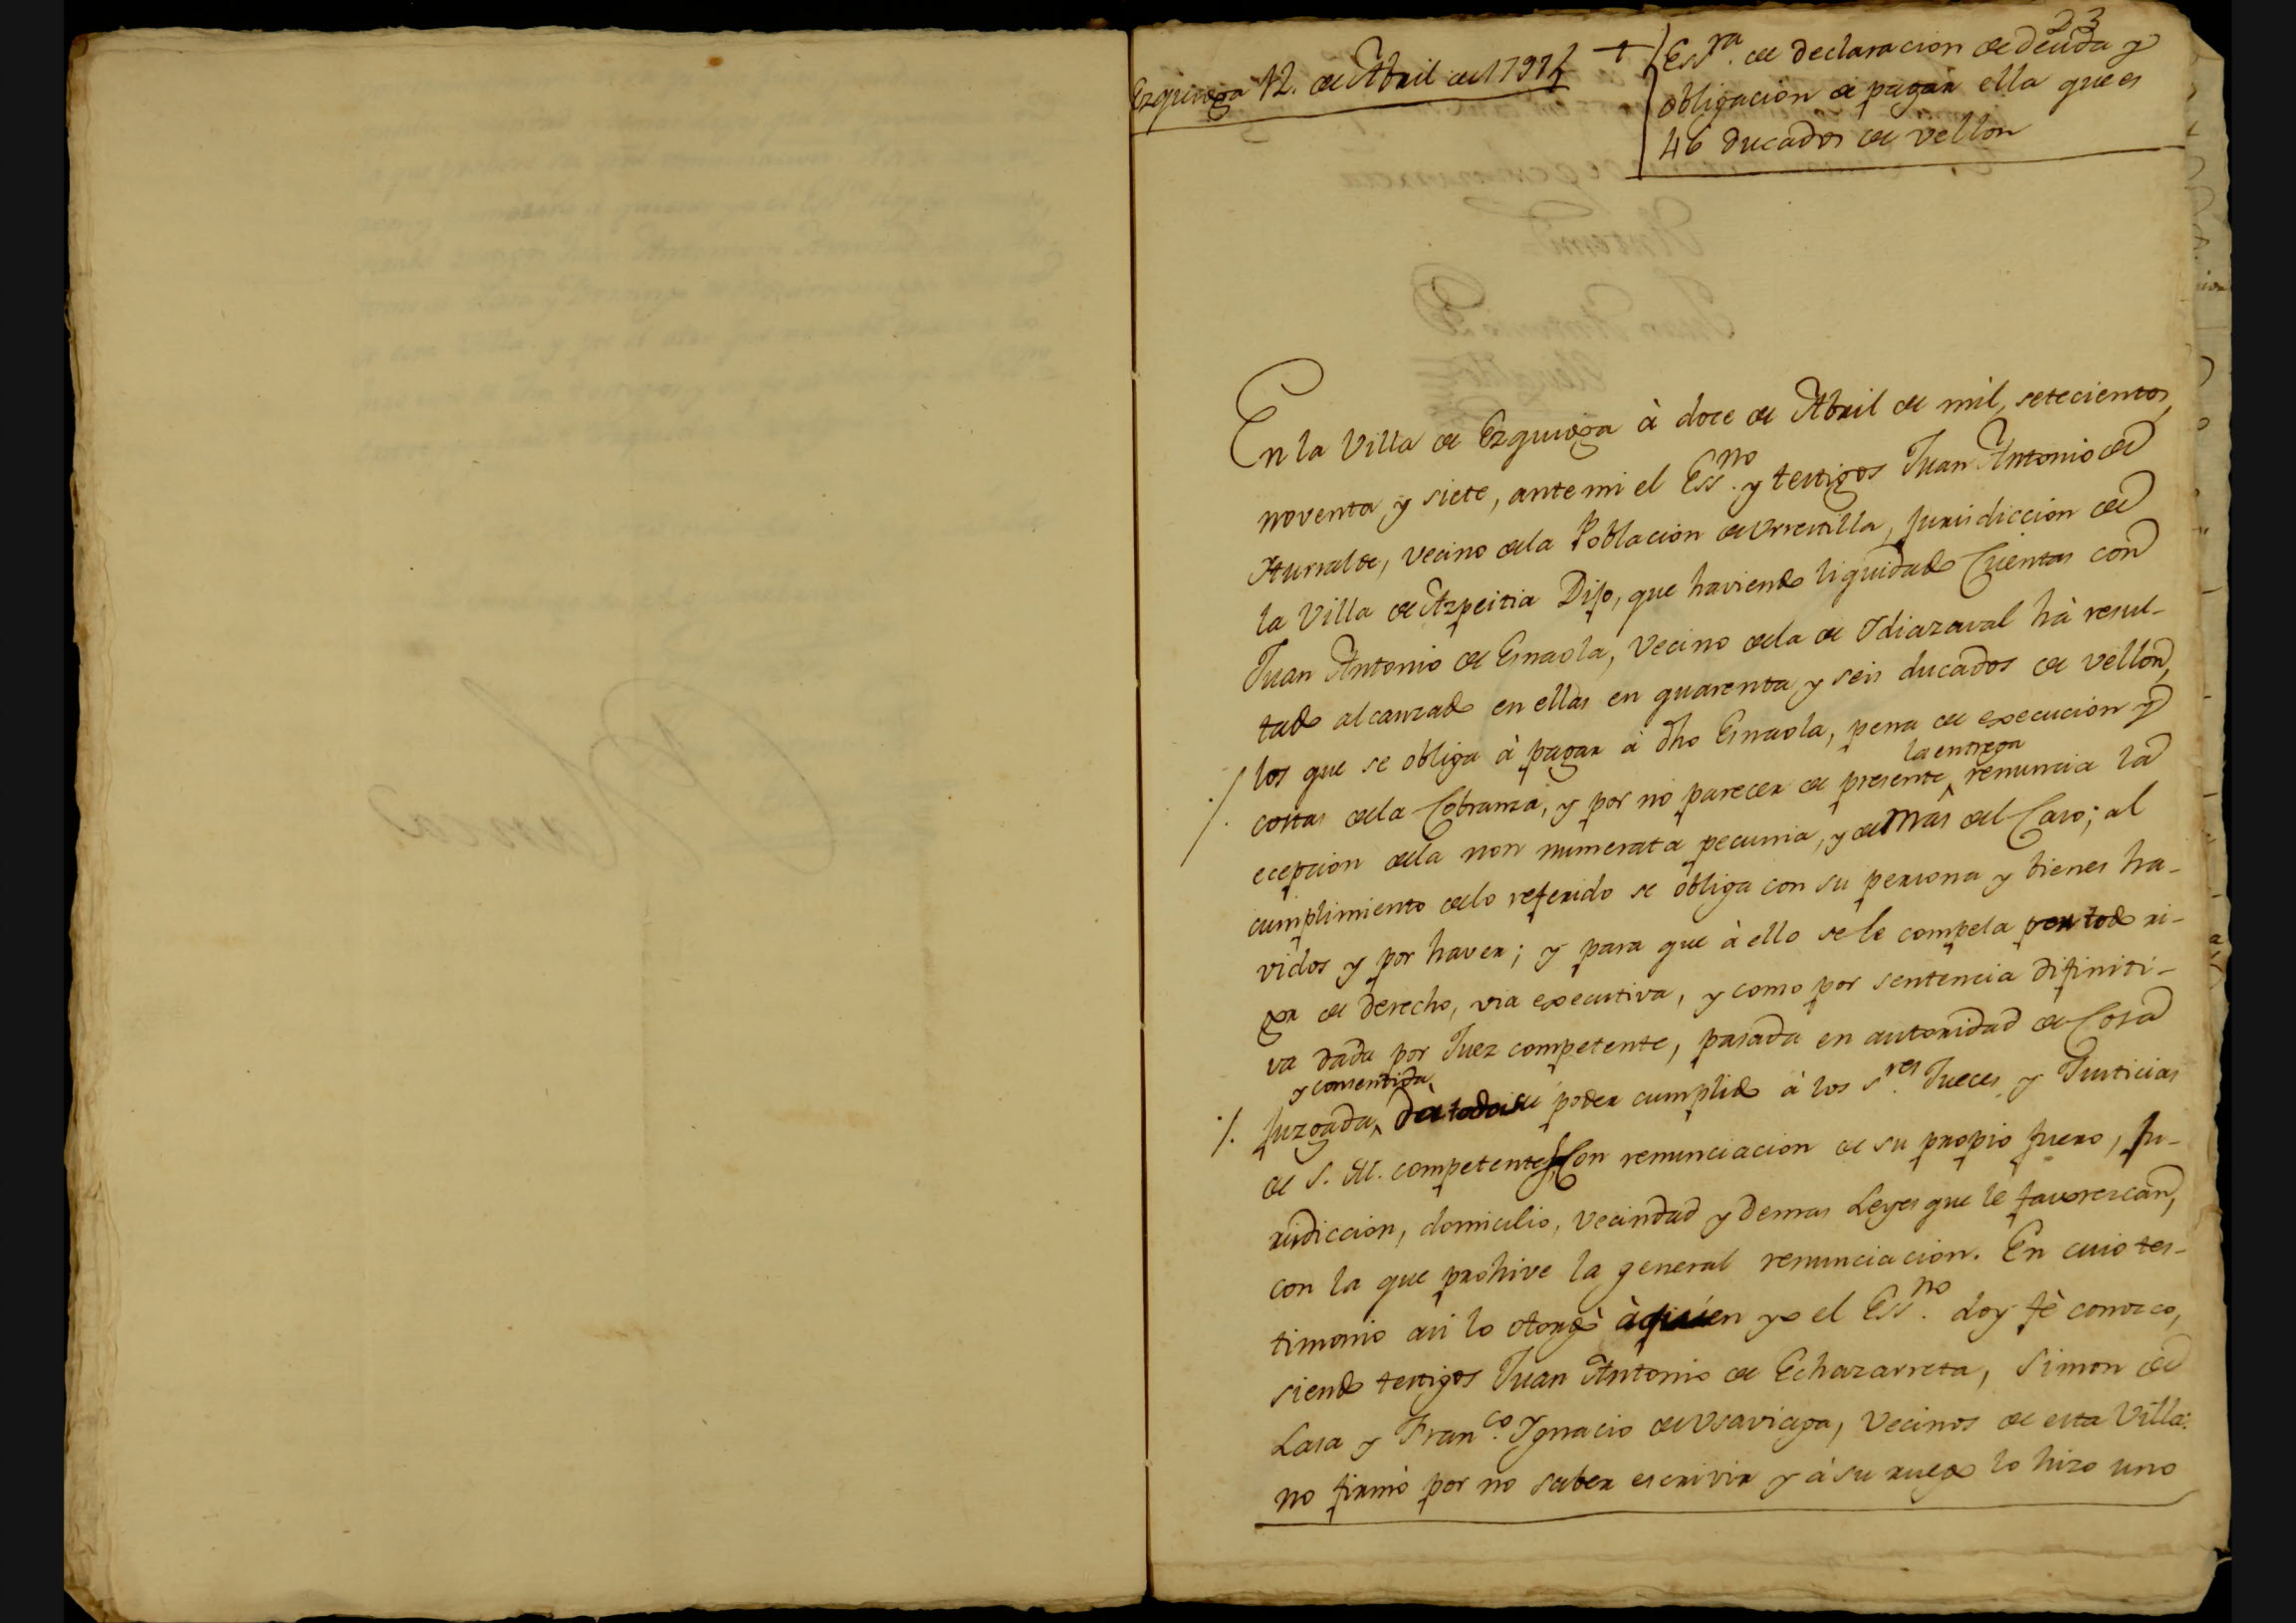 23
Ezquioga 12. de Abril de 1797
+
Essra. de declaracion de deuda y
obligación de pagar ella que es
46 ducados de vellon
En la Villa de Ezquioga à doce de Abril de mil, setecientos,
noventa y siete, ante mi el Essno. y testigos Juan Antonio de
Yturralde, vecino de la Poblacion de Vrrestilla, jurisdiccion de
la Villa de Azpeitia Dijo, que haviendo liquidado Cuentas con
Juan Antonio de Esnaola, Vecino de la de Ydiazaval hà resul-
tado alcanzado en ellas en quarenta y seis ducados de vellon,
los que se obliga à pagar à dho Esnaola, pena de execucion y
costas de la Cobranza, y por no parecer de presente la entrega renuncia la
ecepcion de la non numerata pecunia, y demas del Caso; al
cumplimiento de lo referido se obliga con su persona y bienes ha-
vidos y por haver; y para que à ello se le compela por todo ri-
gor de derecho, via executiva, y como por sentencia difiniti-
va dada por Juez competente, pasada en autoridad de Cosa
juzgada, y consentida, da todo su poder cumplido à los Sres. Jueces y Justicias
de S. M. competentes, Con renunciacion de su propio fuero, ju-
risdiccion, domicilio, vecindad y demas Leyes que le favorezcan,
con la que prohive la general renunciacion. En cuio tes-
timonio asi lo otorgò à quien yo el Essno. doy fè conozco,
siendo testigos Juan Antonio de Echazarreta, Simon de
Lasa y Franco. Ygnacio de Vsaviaga, Vecinos de esta Villa:
no firmò por no saber escrivir y à su ruego lo hizo uno